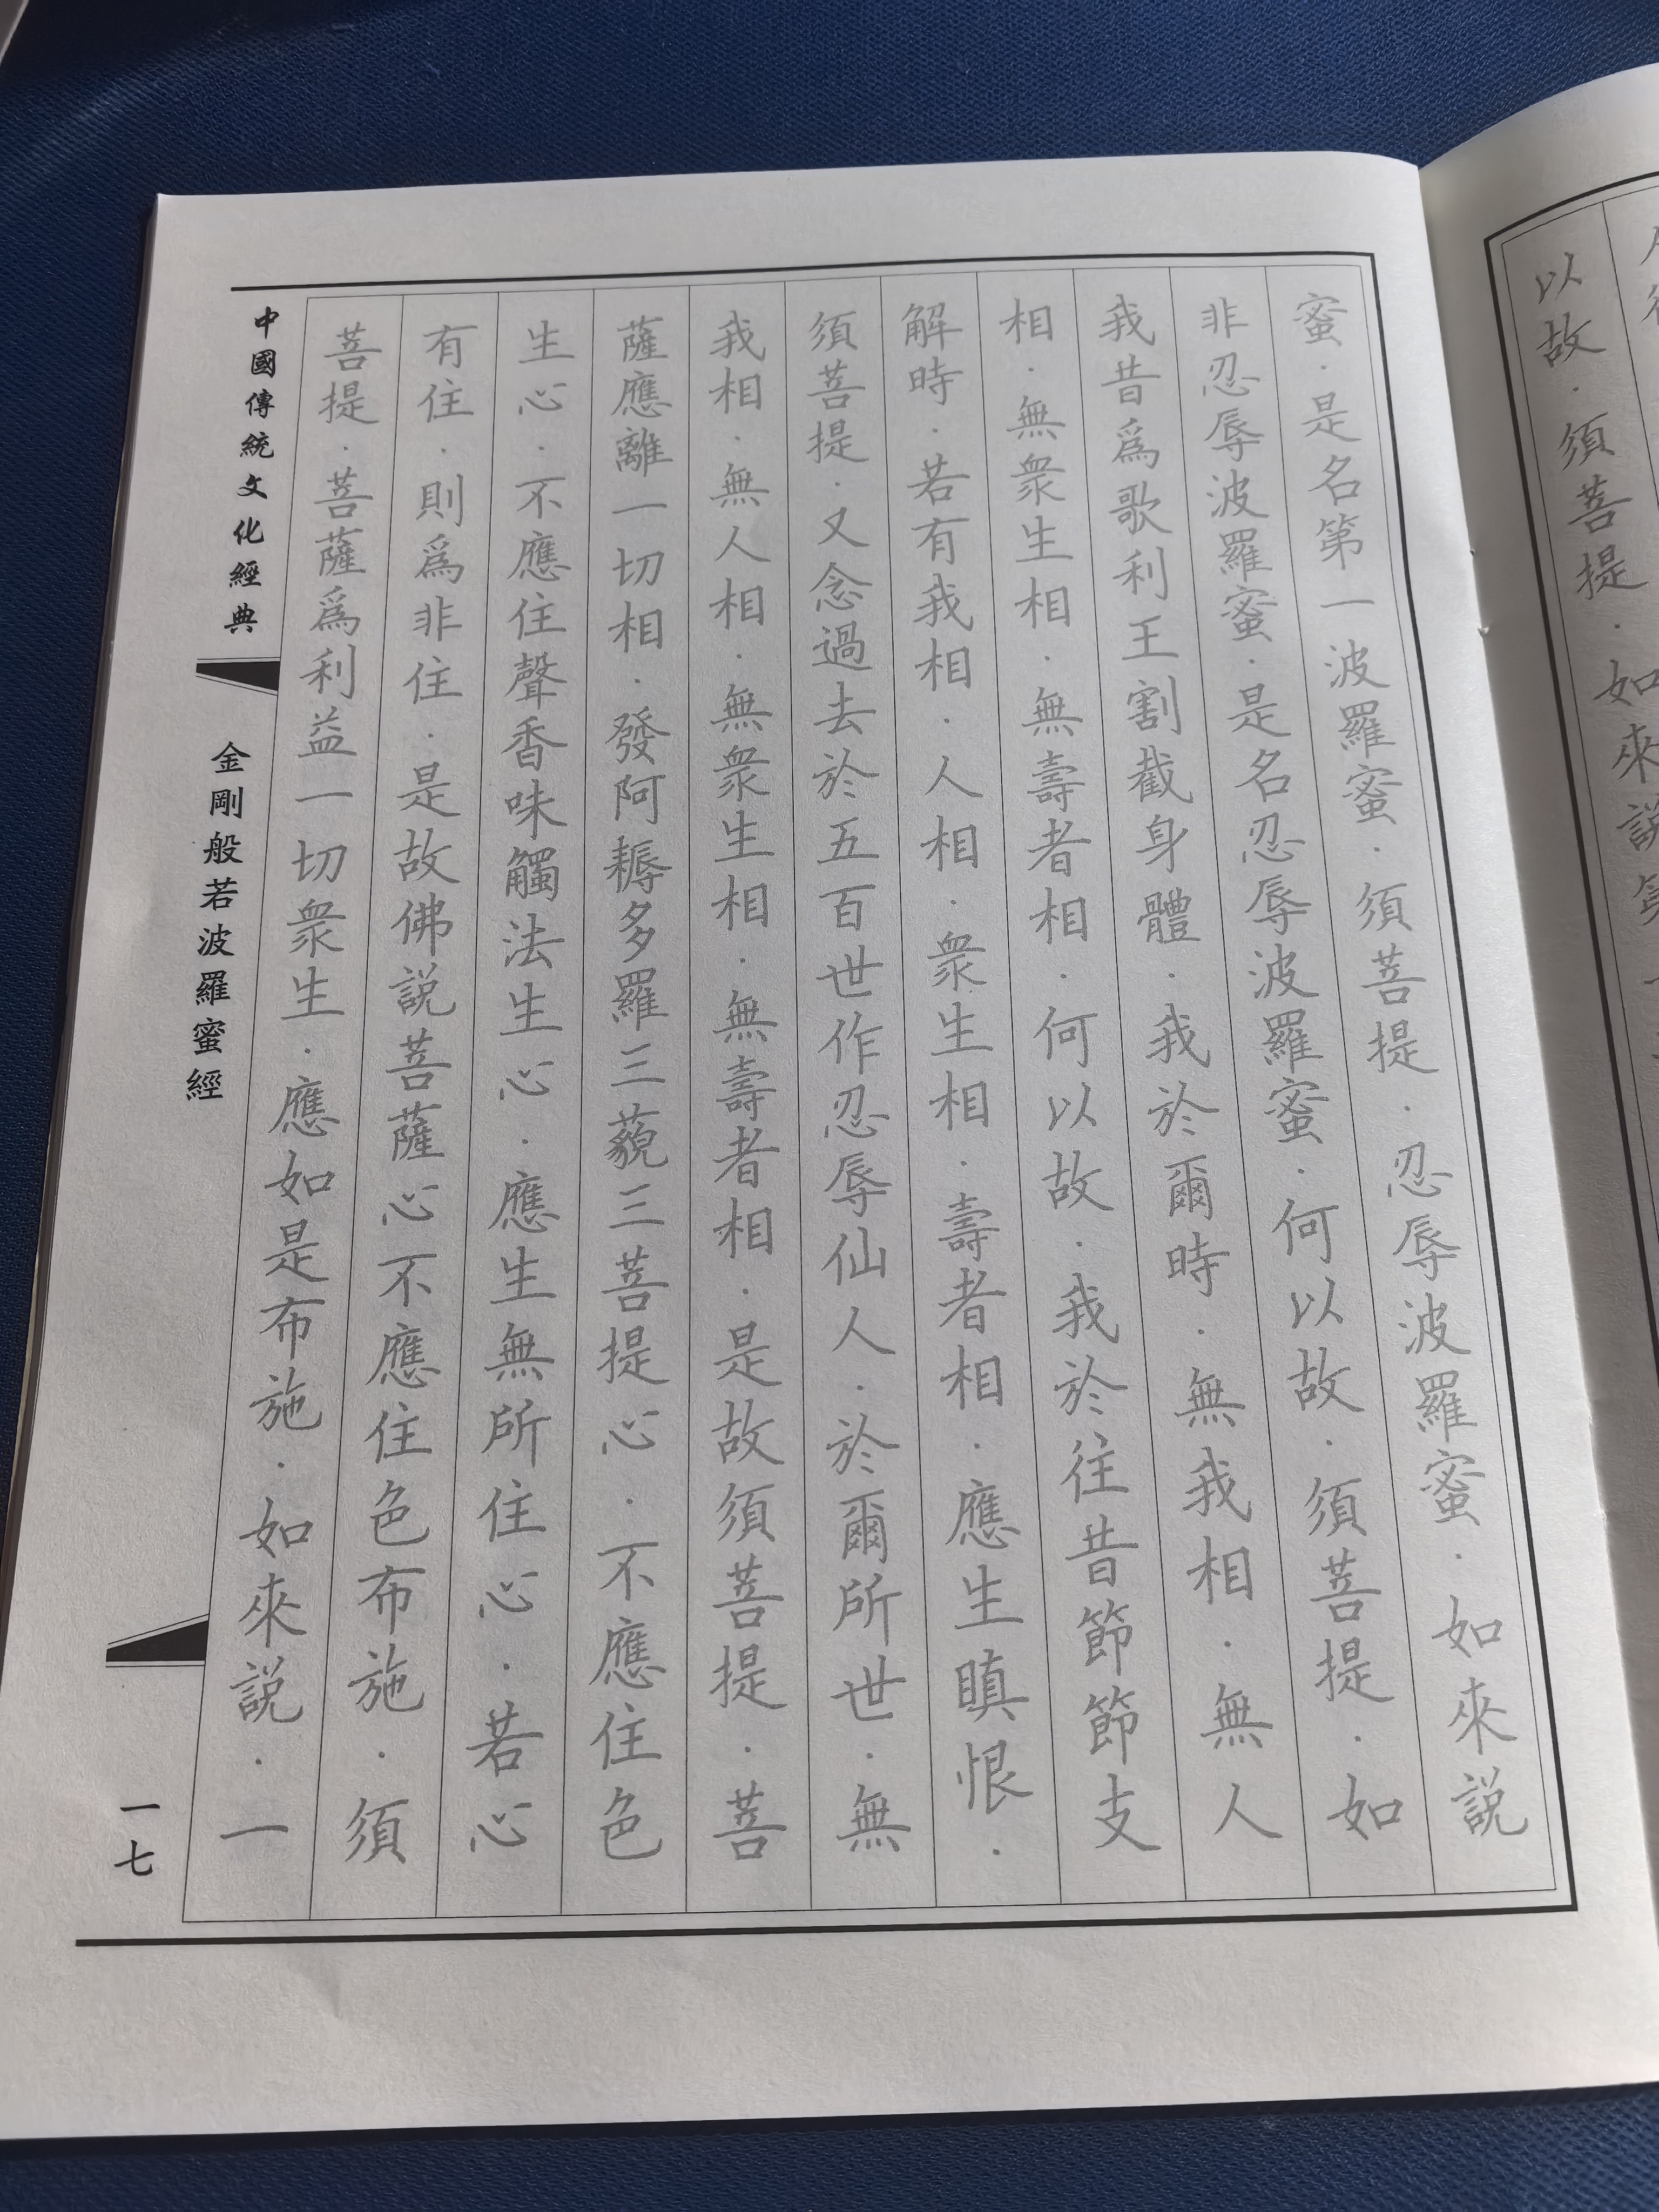 以故·須菩提·如來説第
蜜·是名第一波羅蜜·須菩提·忍辱波羅蜜·如來説
非忍辱波羅蜜·是名忍辱波羅蜜·何以故·須菩提·如
我昔爲歌利王割截身體·我於爾時·無我相·無人
相·無衆生相·無壽者相·何以故·我於往昔節節支
解時·若有我相·人相·衆生相·壽者相·應生瞋恨·
須菩提·又念過去於五百世作忍辱仙人·於爾所世·無
我相·無人相·無衆生相·無壽者相·是故須菩提·菩
薩應離一切相·發阿耨多羅三藐三菩提心·不應住色
生心·不應住聲香味觸法生心·應生無所住心·若心
有住·則爲非住·是故佛説菩薩心不應住色布施·須
菩提·菩薩爲利益一切衆生·應如是布施·如來説·一
中國傳統文化經典
金剛般若波羅蜜經
一七